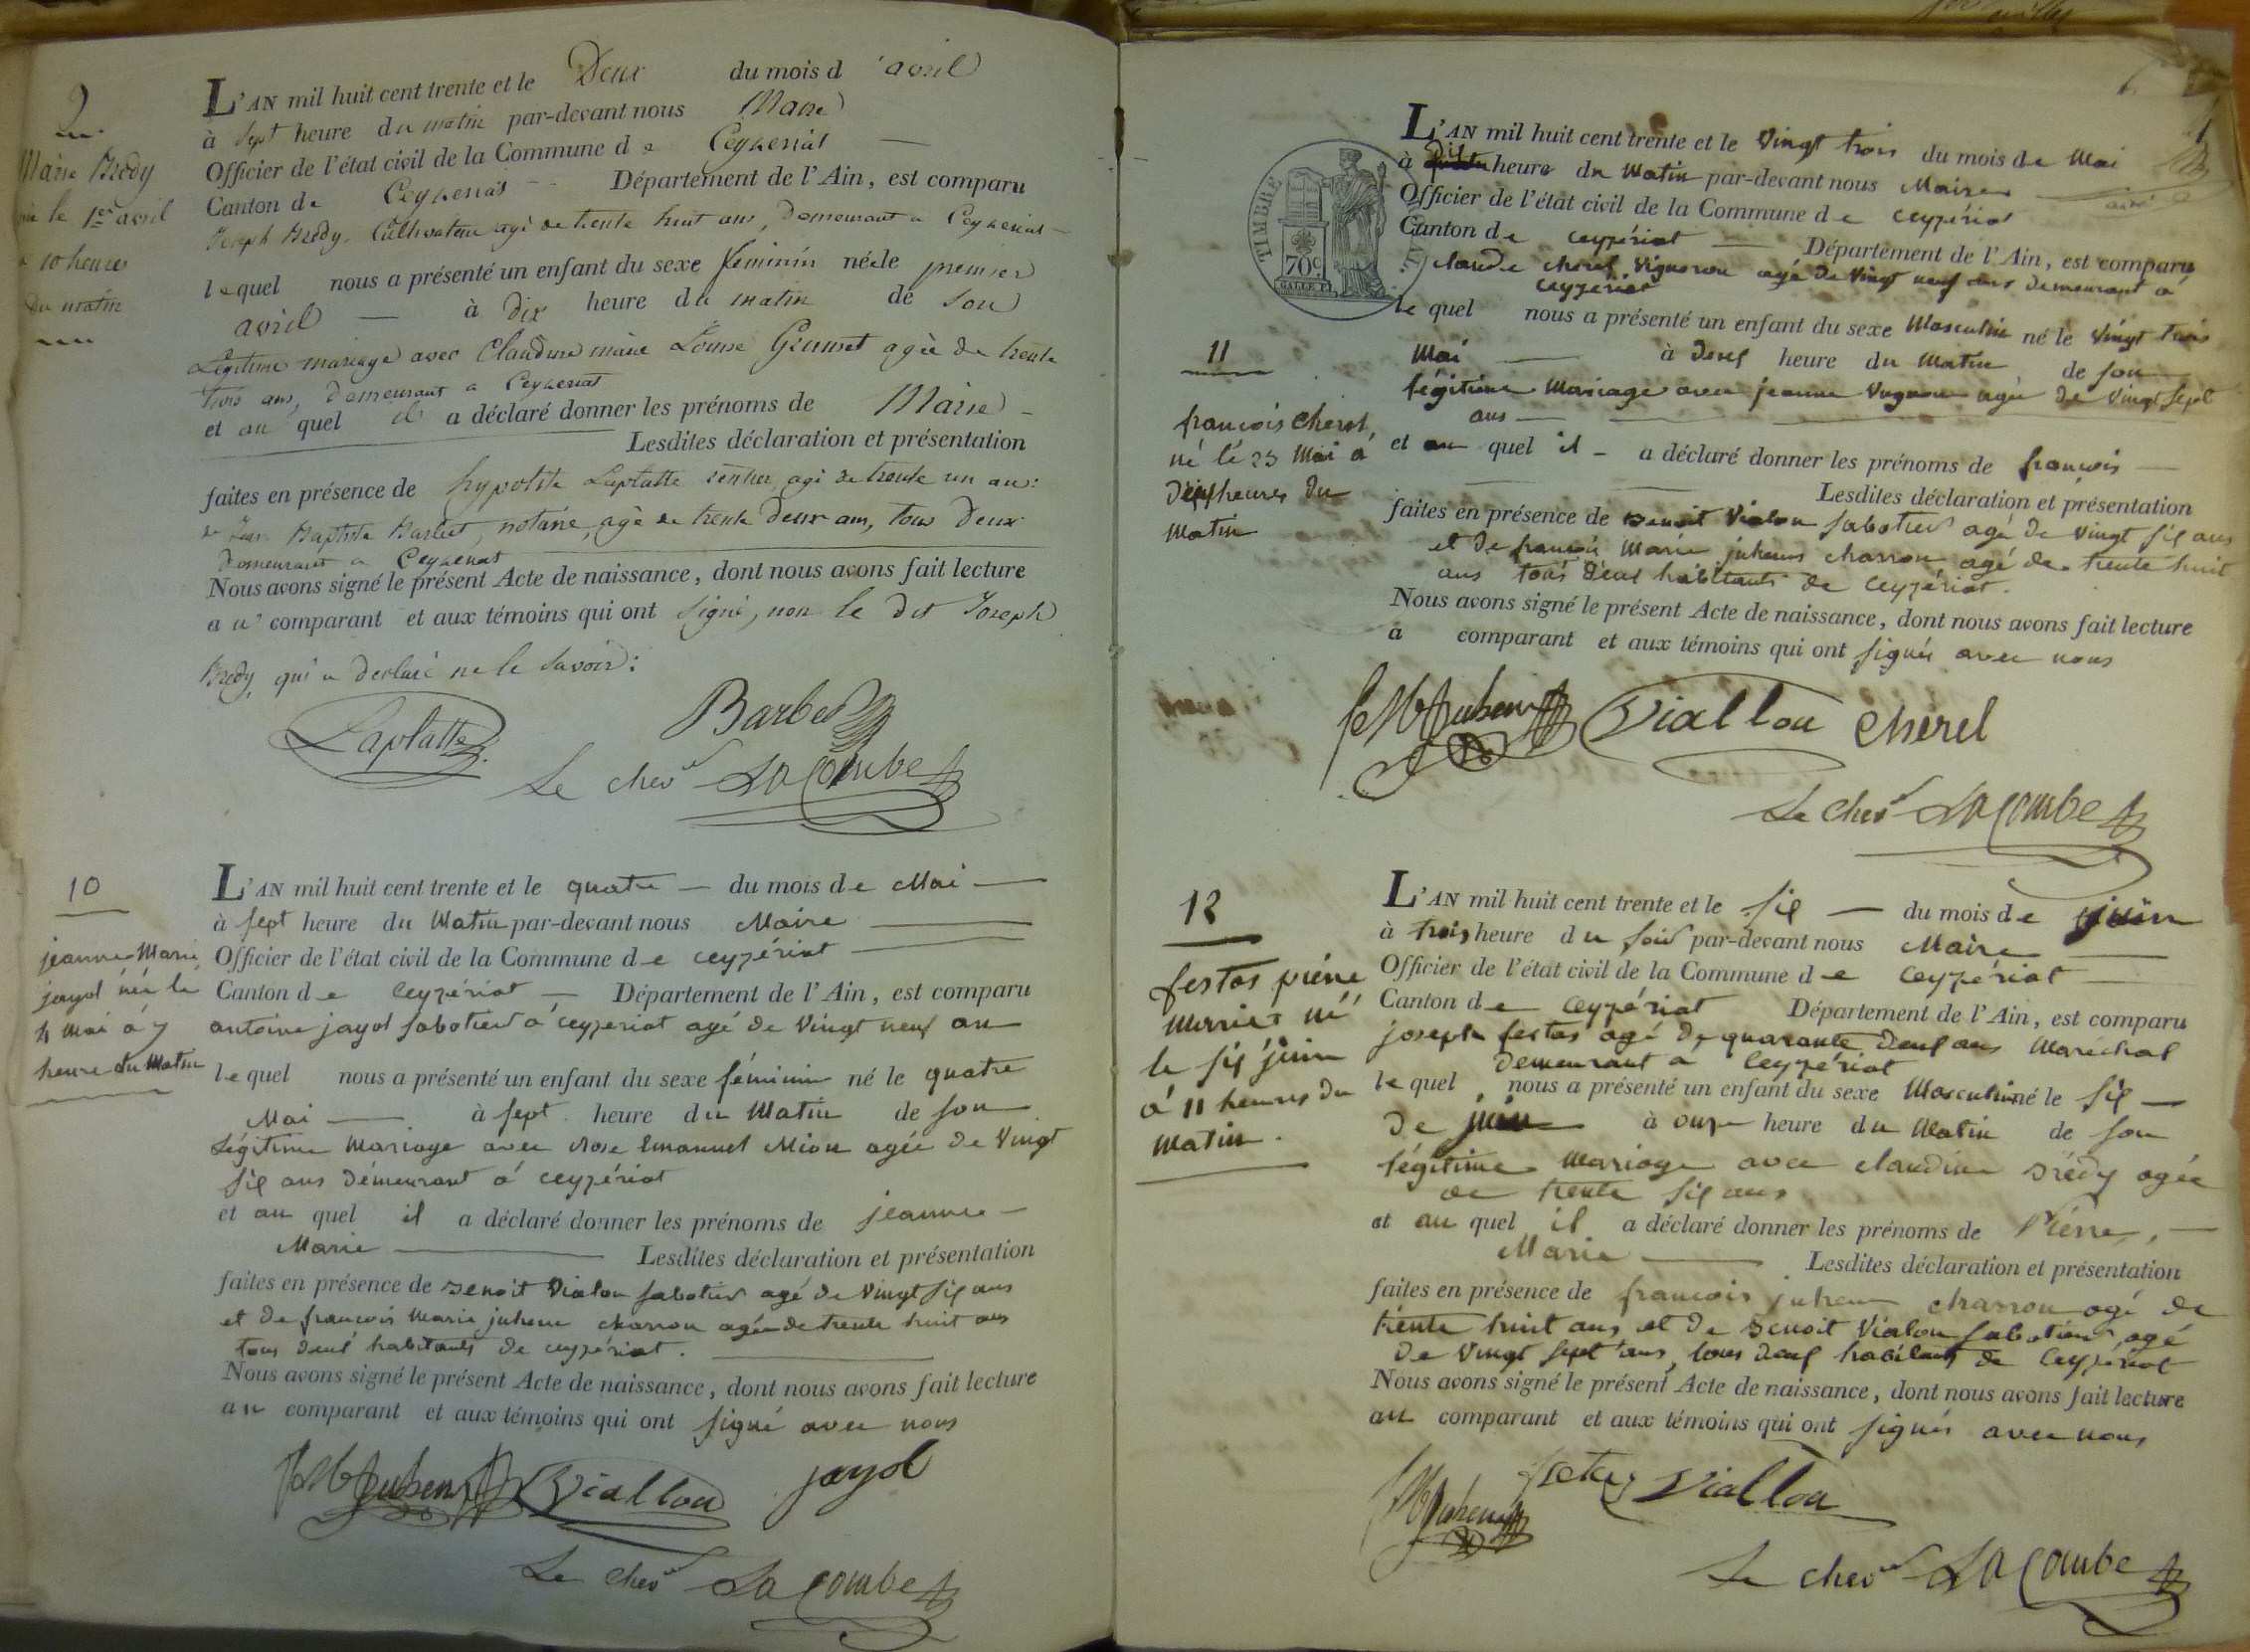 9
Marie Brédy
née le 1er avril
à 10 heures
du matin
L'AN mil huit cent trente et le Deux du mois d'avril
à sept heure du matin par-devant nous Maire
Officier de l'état civil de la Commune de Ceyzeriat
Canton de Ceyzeriat Département de l'Ain, est comparu
Joseph Brédy, Cultivateur agé de trente huit ans, Demeurant a Ceyzeriat
lequel nous a présenté un enfant du sexe féminin née le premier
avril à dix heure du matin de son
Légitime mariage avec Claudine marie Louise agée de trente
trois ans, Demeurant a Ceyzeriat
et au quel il a déclaré donner les prénoms de Marie
Lesdites déclaration et présentation
faites en présence de hypolite Laplatte rentier, agé de trente un ans
& Jean Baptiste Barbet, notaire, agé de trente deux ans, tous Deux
Demeurant a Ceyzeriat
Nous avons signé le présent Acte de naissance, dont nous avons fait lecture
au comparant et aux témoins qui ont signé, non le dit Joseph
Brédy, qui a déclaré ne le savoir.
Laplatte Barbet
Le chevr Lacombe
10
jeanne Marie
jayol née le
4 Mai à 7
heure du Matin
L'AN mil huit cent trente et le quatre du mois de Mai
à sept heure du Matin par-devant nous Maire
Officier de l'état civil de la Commune de ceyzériat
Canton de Ceyzériat Département de l'Ain, est comparu
antoine jayol sabotier à ceyzeriat agé de Vingt neuf an
lequel nous a présenté un enfant du sexe féminin né le quatre
Mai à sept heure du Matin de son
Légitime Mariage avec Rose Emanuel Mion agée de Vingt
six ans Démeurant à ceyzériat
et au quel il a déclaré donner les prénoms de jeanne
Marie Lesdites déclaration et présentation
faites en présence de Benoit Vialon sabotier agé de Vingt six ans
et de françois Marie juhem charron agée de trente huit ans
tous deux habitants de ceyzériat.
Nous avons signé le présent Acte de naissance, dont nous avons fait lecture
au comparant et aux témoins qui ont signé avec nous
Viallon jayol
Le chevr Lacombe
TIMBRE
70c
11
françois Cherel,
né le 23 Mai à
Dixheures du
Matin
L'AN mil huit cent trente et le Vingt trois du mois de Mai
à Dix heure du Matin par-devant nous Maire
Officier de l'état civil de la Commune de ceyzériat
Canton de ceyzériat Département de l'Ain, est comparu
claude cherel Vigneron agé de Vingt neuf ans demeurant à
ceyzeriat
le quel nous a présenté un enfant du sexe Masculin né le Vingt trois
Mai à deux heure du Matin de son
légitime Mariage avec jeanne agée de Vingt sept
ans
et au quel il a déclaré donner les prénoms de françois
Lesdites déclaration et présentation
faites en présence de Benoit Vialon sabotier agé de Vingt six ans
et de françois Marie juhem charron, agé de trente huit
ans tous deux habitants de ceyzériat.
Nous avons signé le présent Acte de naissance, dont nous avons fait lecture
a comparant et aux témoins qui ont signés avec nous
Viallon Cherel
Le chevr Lacombe
12
festas piérre
Marie né
le six juin
à 11 heures du
Matin.
L'AN mil huit cent trente et le six du mois de juin
à trois heure du soir par-devant nous Maire
Officier de l'état civil de la Commune de ceyzériat
Canton de ceyzériat Département de l'Ain, est comparu
joseph festas agé De quarante Deux ans Maréchal
Demeurant à Ceyzériat
le quel nous a présenté un enfant du sexe Masculin né le six
De juin à onze heure du Matin de son
légitime Mariage avec claudine Brédy agée
de trente six ans
et au quel il a déclaré donner les prénoms de Piérre,
Marie Lesdites déclaration et présentation
faites en présence de francois juhem charron agé de
trente huit ans et de Benoit Vialon sabotier agé
de Vingt sept ans, tous deux habitants de Ceyzériat
Nous avons signé le présent Acte de naissance, dont nous avons fait lecture
au comparant et aux témoins qui ont signés avec nous
Viallon
Le chevr Lacombe